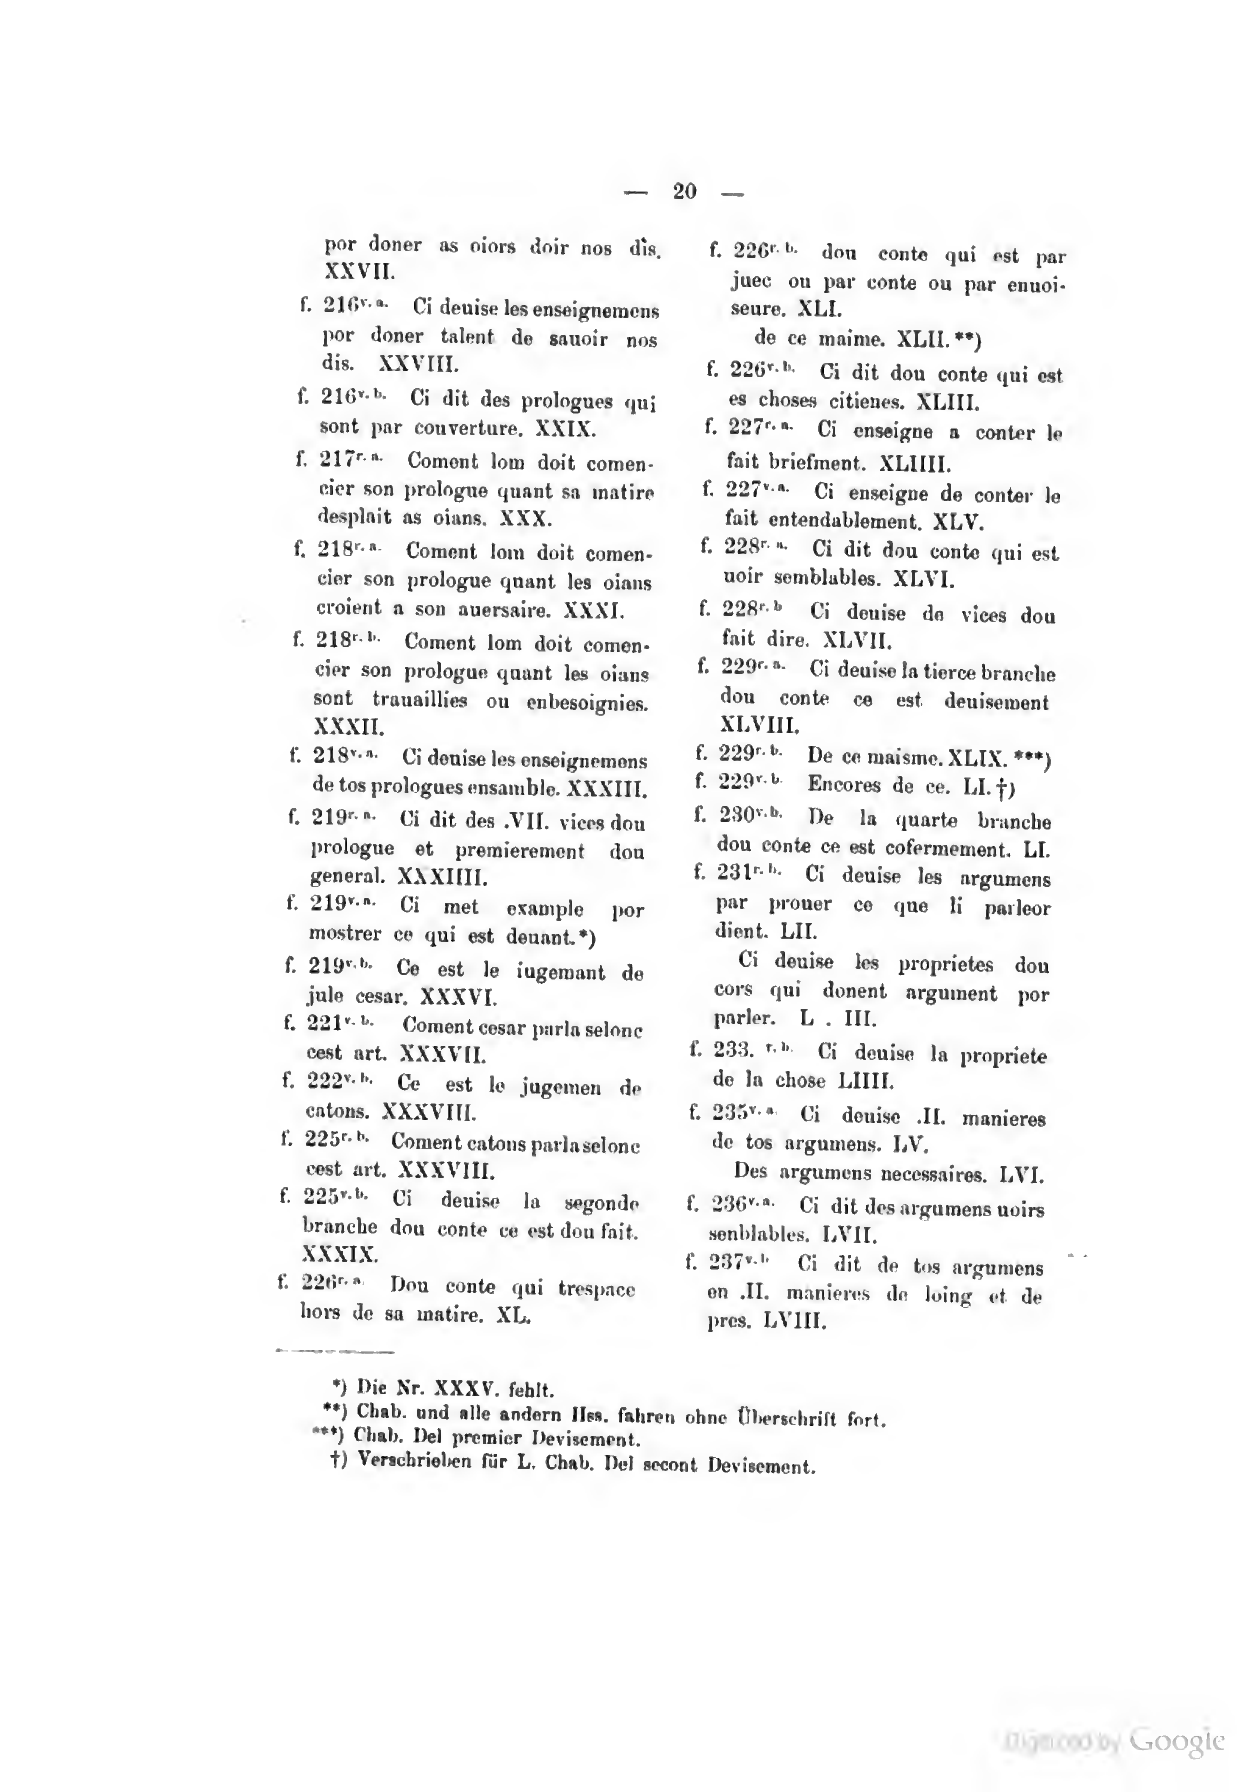 — 20 —
por doner as oiors doir nos dis.
XXVII.
f. 216v. a. Ci deuise les enseignemens
por doner talent de sauoir nos
dis. XXVIII.
f. 216v. b. Ci dit des prologues qui
sont par couverture. XXIX.
f. 217r. a. Coment lom doit comen-
cier son prologue quant sa matire
desplait as oians. XXX.
f. 218r. a. Coment lom doit comen-
cier son prologue quant les oians
croient a son auersaire. XXXI.
f. 218r. b. Coment lom doit comen-
cier son prologue quant les oians
sont trauaillies ou enbesoignies.
XXXII.
f. 218v. a. Ci deuise les enseignemens
de tos prologues ensamble. XXXIII.
f. 219r. a. Ci dit des .VII. vices dou
prologue et premierement dou
general. XXXIIII.
f. 219v. a. Ci met example por
mostrer ce qui est deuant.*)
f. 219v. b. Ce est le iugemant de
jule cesar. XXXVI.
f. 221v. b. Coment cesar parla selonc
cest art. XXXVII.
f. 222v. b. Ce est le jugemen de
catons. XXXVIII.
f. 225r. b. Coment catons parla selonc
cest art. XXXVIII.
f. 225v. b. Ci deuise la segonde
branche dou conte ce est dou fait.
XXXIX.
f. 226r. a. Dou conte qui trespace
hors de sa matire. XL.
f. 226r. b. dou conte qui est par
juec ou par conte ou par enuoi-
seure. XLI.
de ce maime. XLII.**)
f. 226v. b. Ci dit dou conte qui est
es choses citienes. XLIII.
f. 227r. a. Ci enseigne a conter le
fait briefment. XLIIII.
f. 227v. a. Ci enseigne de conter le
fait entendablement. XLV.
f. 228r. a. Ci dit dou conte qui est
uoir semblables. XLVI.
f. 228r. b Ci deuise de vices dou
fait dire. XLVII.
f. 229r. a. Ci deuise la tierce branche
dou conte ce est deuisement
XLVIII.
f. 229r. b. De ce maisme. XLIX.***)
f. 229v. b. Encores de ce. LI.†)
f. 230v. b. De la quarte branche
dou conte ce est cofermement. LI.
f. 231r. b. Ci deuise les argumens
par prouer ce que li parleor
dient. LII.
Ci deuise les proprietes dou
cors qui donent argument por
parler. L . III.
f. 233. r. b. Ci deuise la propriete
de la chose LIIII.
f. 235v. a Ci deuise .II. manieres
de tos argumens. LV.
Des argumens necessaires. LVI.
f. 236v. a. Ci dit des argumens uoirs
senblables. LVII.
f. 237v. b Ci dit de tos argumens
en .II. manieres de loing et de
pres. LVIII.
*) Die Nr. XXXV. fehlt.
**) Chab. und alle andern Hss. fahren ohne Überschrift fort.
***) Chab. Del premier Devisement.
†) Verschrieben für L. Chab. Del secont Devisement.
Digitized by Google